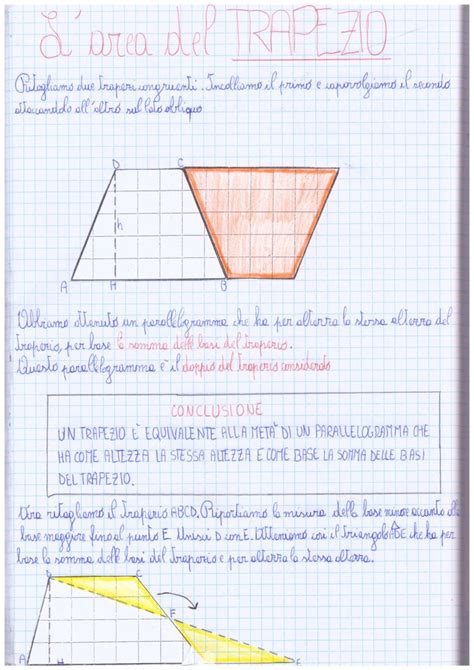 L'area del TRAPEZIO
Ritagliamo due trapezi congruenti. Incolliamo il primo e capovolgiamo il secondo
attaccandolo all'altro sul lato obliquo
D C
h
A H B
Abbiamo ottenuto un parallelogramma che ha per altezza la stessa altezza del
trapezio, per base la somma delle basi del trapezio.
Questo parallelogramma è il doppio del trapezio considerato
CONCLUSIONE
UN TRAPEZIO E' EQUIVALENTE ALLA META' DI UN PARALLELOGRAMMA CHE
HA COME ALTEZZA LA STESSA ALTEZZA E COME BASE LA SOMMA DELLE BASI
DEL TRAPEZIO.
Ora ritagliamo il trapezio ABCD. Riportiamo la misura della base minore accanto alla
base maggiore fino al punto E. Unisci D con E. Otteniamo così il triangolo ADE che ha per
base la somma delle basi del trapezio e per altezza la stessa altezza.
D C
F
A H E